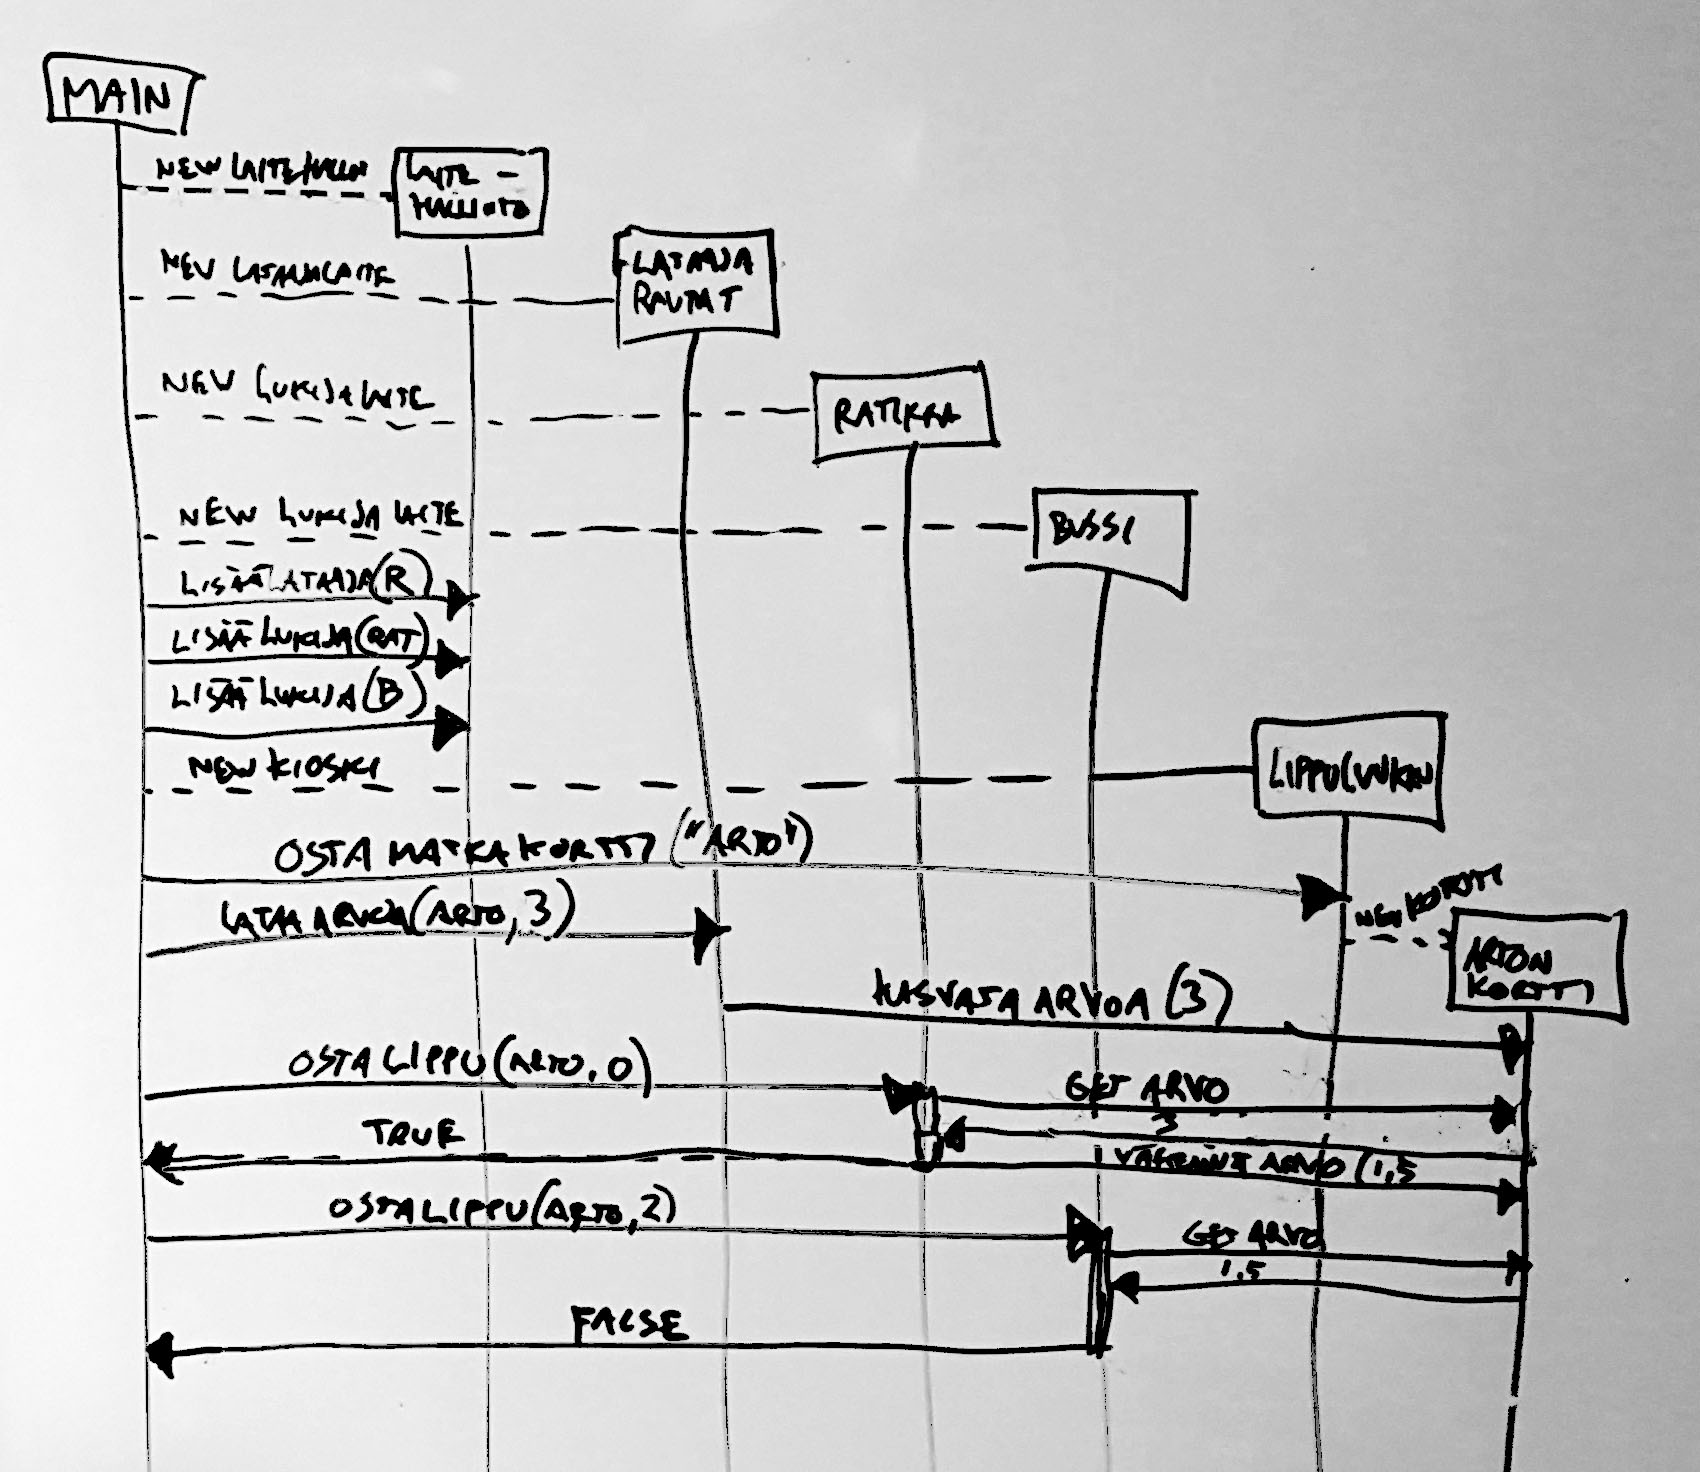 MAIN
NEW LAITEHALLN
LAITE -
HALLINTO
NEW LATAAJALAITE
LATAAJA
RAUTAT
NEW LUKIJALAITE
RATIKKA
NEW LUKIJA LAITE
BUSSI
LISÄÄ LATAAJA(R)
LISÄÄ LUKIJA(RAT)
LISÄÄ LUKIJA(B)
NEW KIOSKI
LIPPULUUKKU
OSTA MATKAKORTTI ("ARTO")
NEW KORTTI
LATAA ARVOA(ARTO, 3)
ARTON
KORTTI
KASVATA ARVOA (3)
OSTA LIPPU(ARTO, 0)
GET ARVO
3
TRUE
VÄHENNÄ ARVO (1,5
OSTA LIPPU(ARTO, 2)
GET ARVO
1,5
FALSE